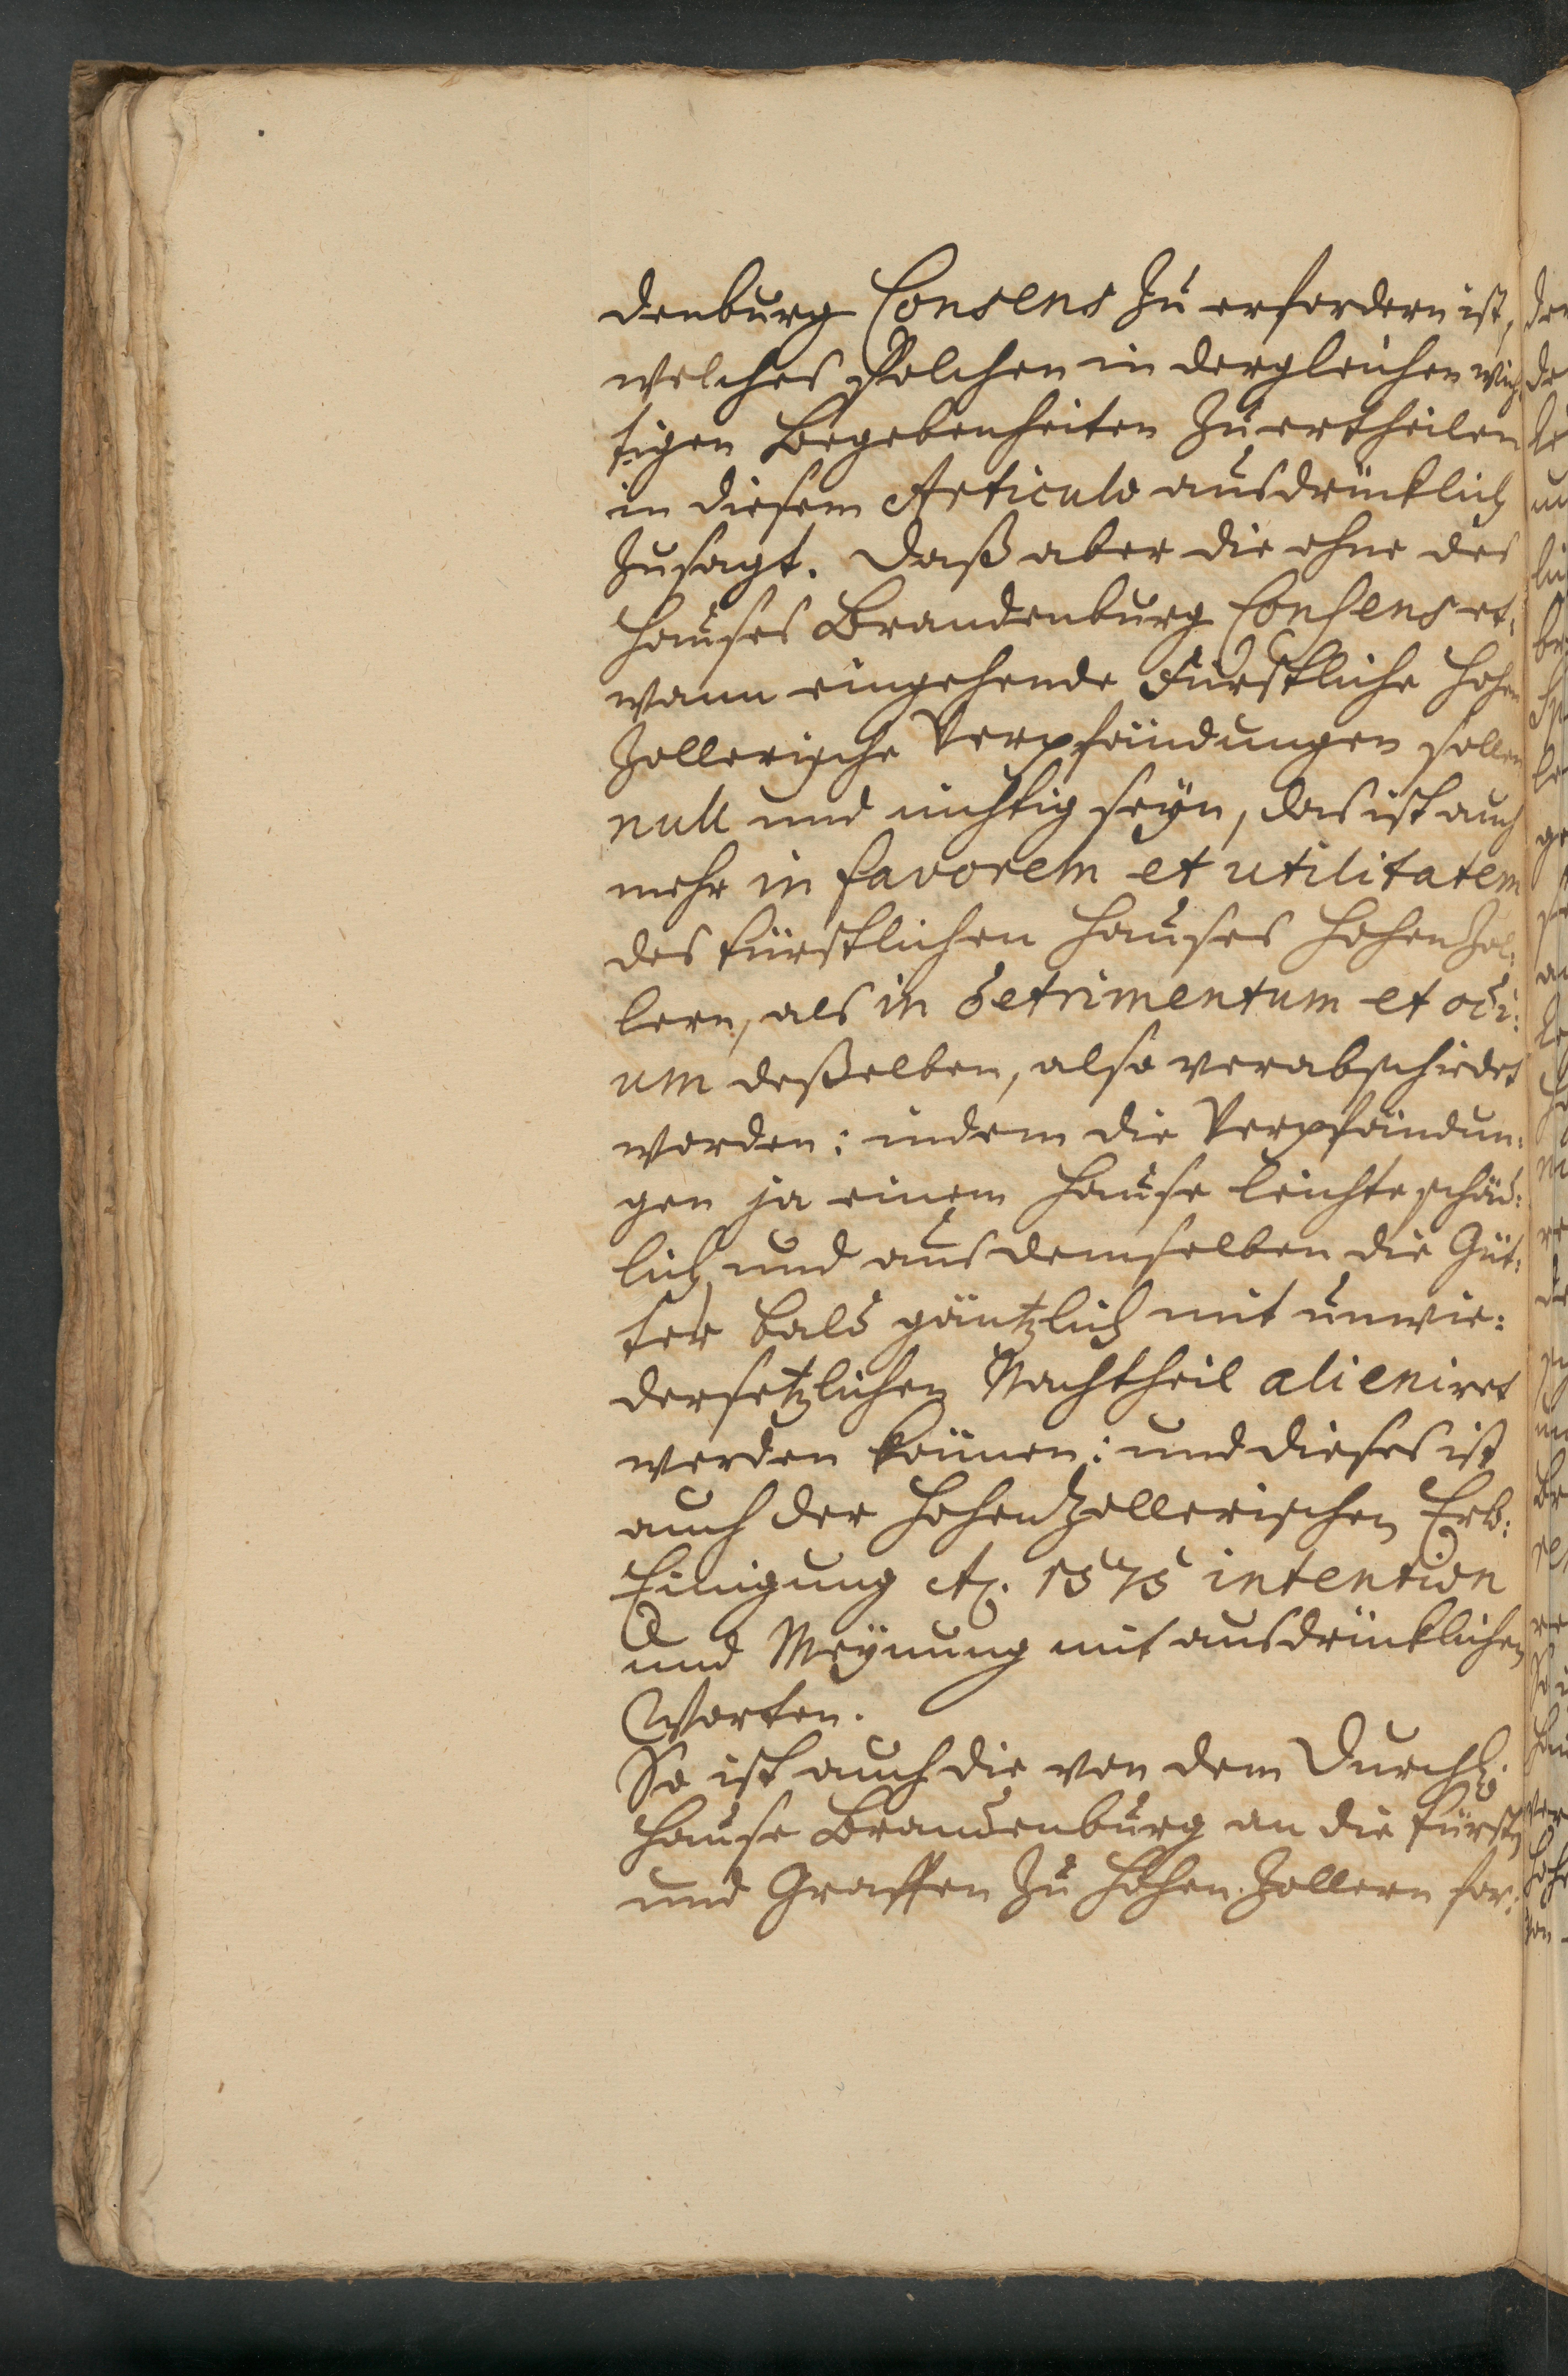 denburg Consens zu erfordern ist,
welches solchen in dergleichen wich-
tigen Begebenheiten zu ertheilen
in diesem Articulo ausdrücklich
zusagt. Daß aber die ohne des
Hauses Brandenburg Consens et-
wann eingehende Fürstliche Hohen
Zollerische Verpfändungen sollen
null und nichtig seyn, das ist auch
mehr in favorem et utilitatem
des fürstlichen Hauses Hohen Zol:
lern, als in detrimentum et odi:
um deßelben, also verabschiedet
worden: indem die Verpfändun:
gen ja einem Hause leichte schäd:
lich und aus demselben die Güt:
ter bald gäntzlich mit unwie:
dersetzlichen Nachtheil alieniret
werden können: und dieses ist
auch der Hohen Zollerischen Erb:
Einigung A. 1575 intention
und Meynung mit ausdrücklichen
Worten.
So ist auch die von dem Durchl.
Hause Brandenburg an die Fürsten
und Graffen zu Hohen Zollern for: